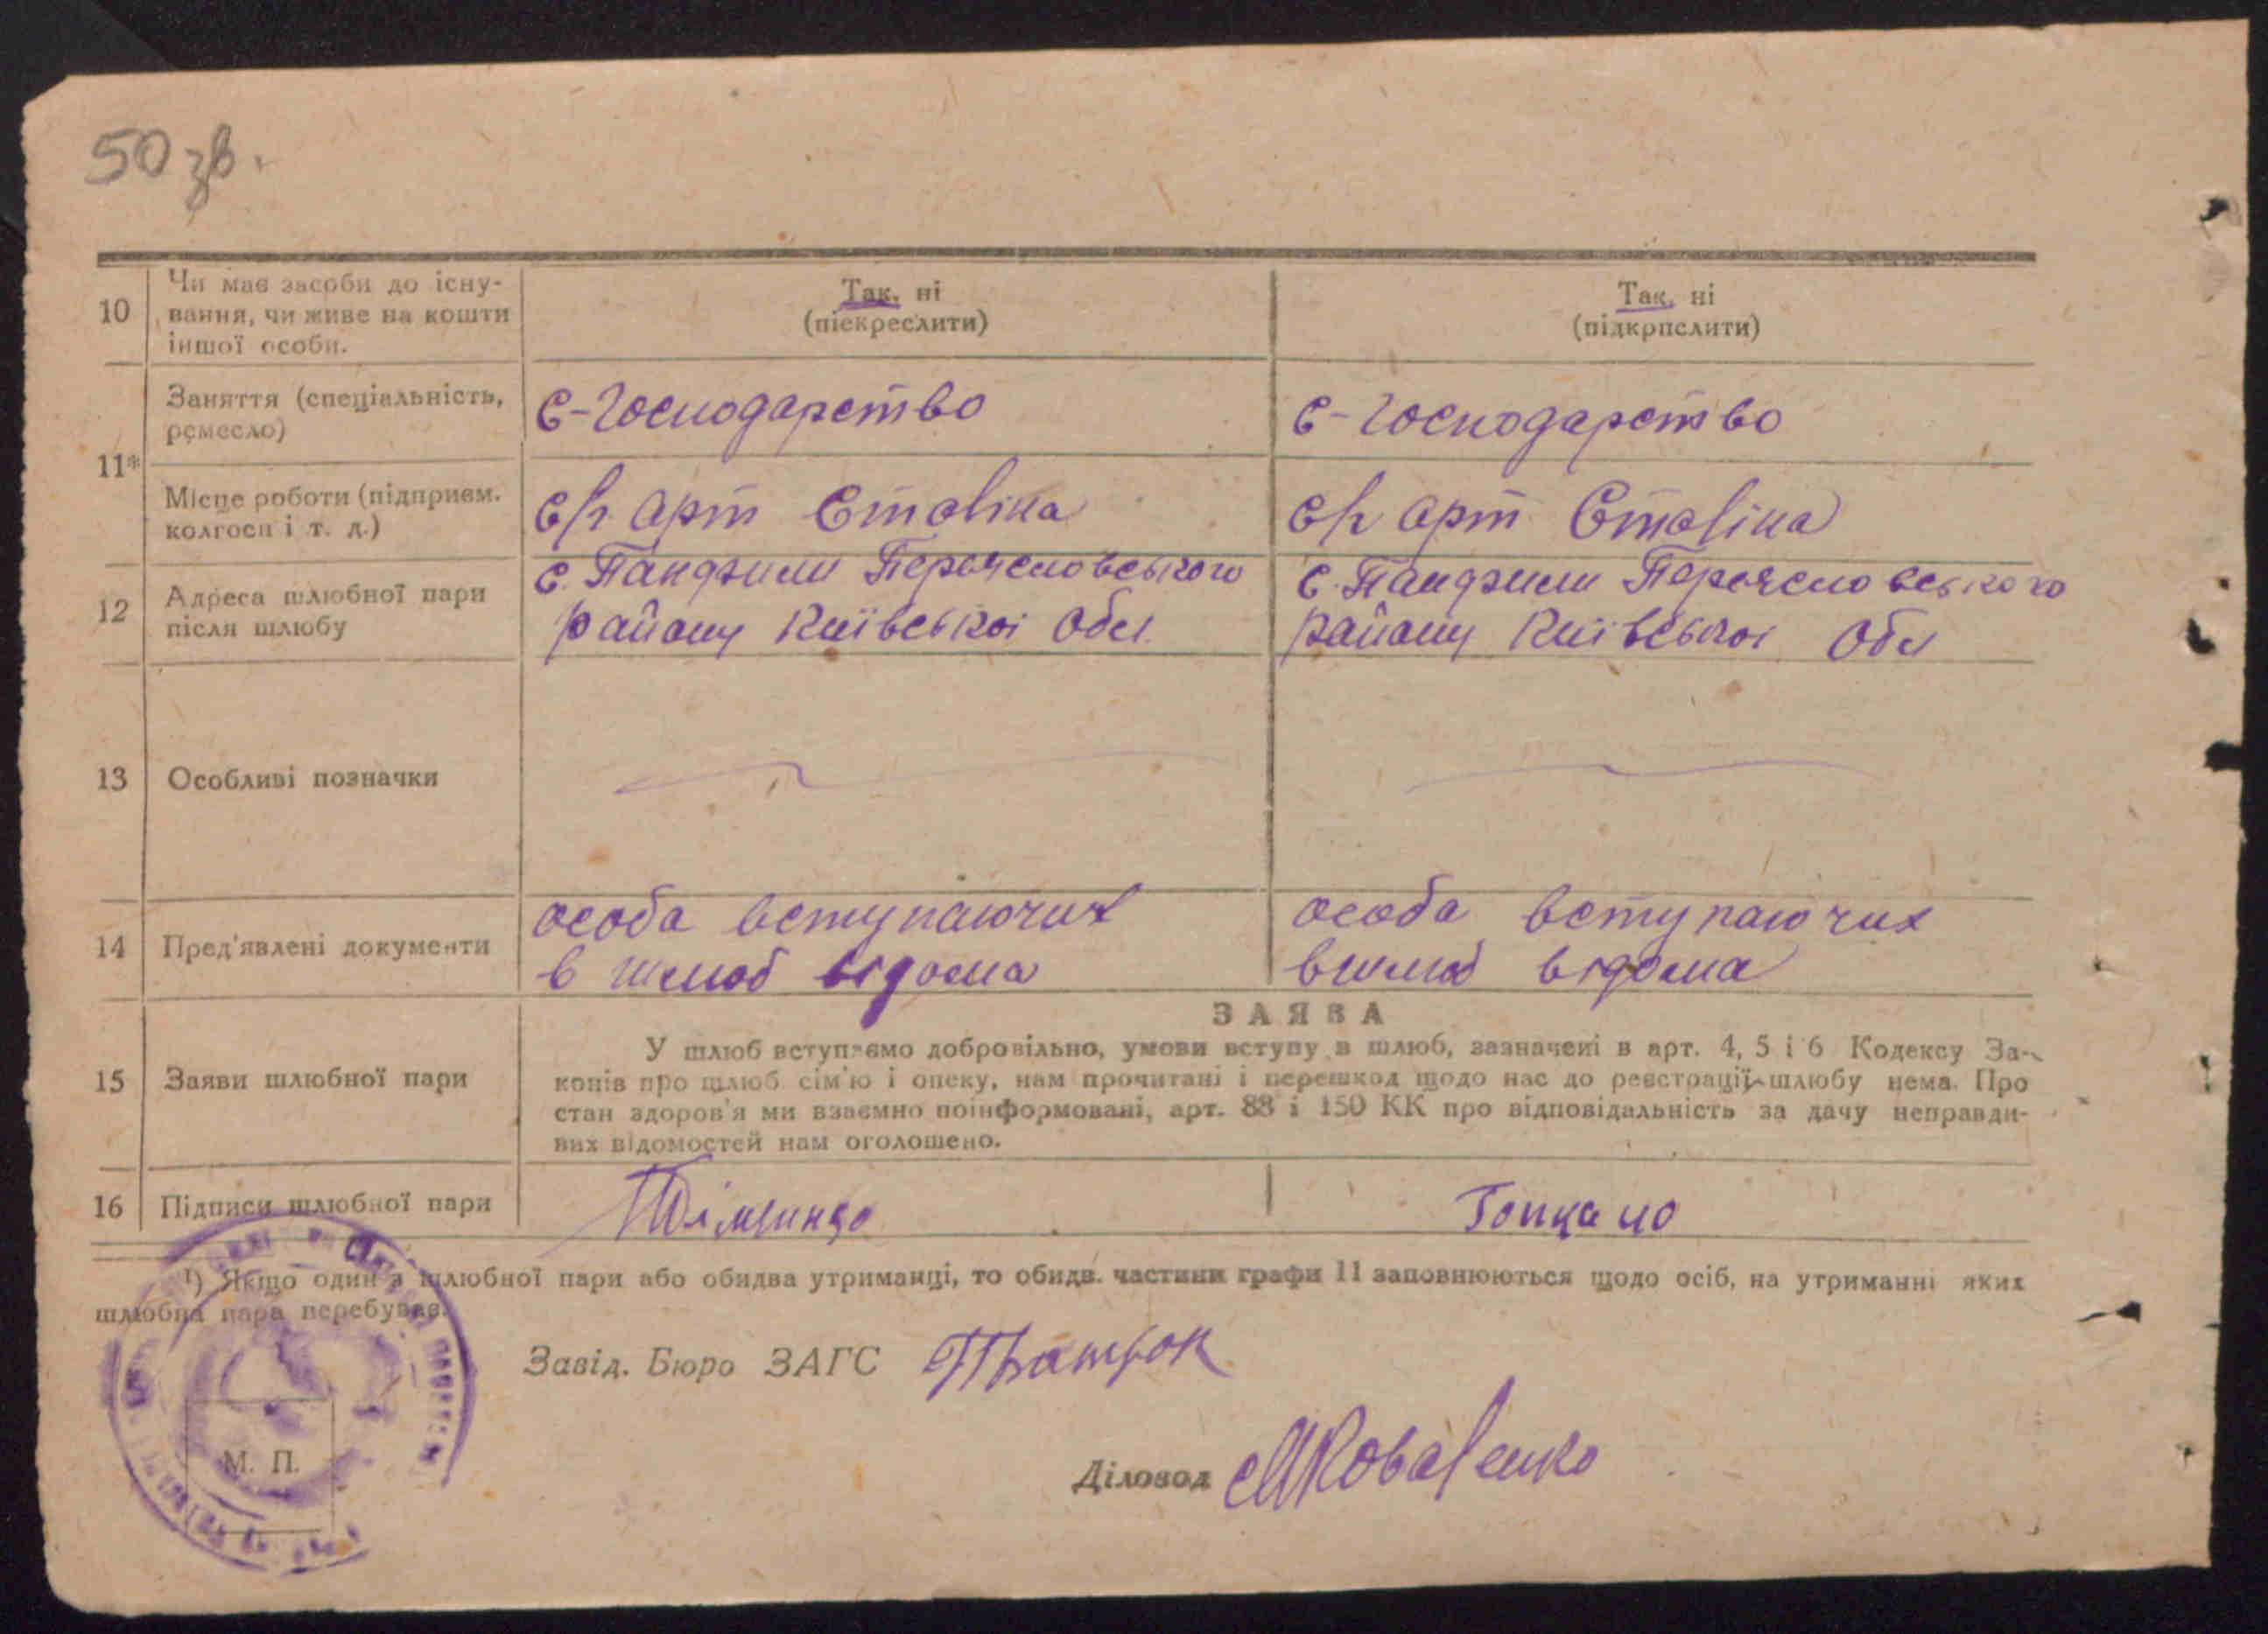 50 зв.
10
Чи має засоби до існу-
вання, чи живе на кошти
іншої особи.
Так, ні
(піекреслити)
Так, ні
(підкрпслити)
11*
Заняття (спеціальність,
ремесло)
с-господарство
с-господарство
Місце роботи (підприєм.
колгосп і т. д.)
с/г арт Сталіна
с/г арт Сталіна
12
Адреса шлюбної пари
після шлюбу
с. Пандзили Переяславського
району Київської Обл.
с. Пандзили Переяславського
району Київської Обл
13
Особливі позначки
14
Пред'явлені документи
особа вступаючих
в шлюб відома
особа вступаючих
в шлюб відома
ЗАЯВА
15
Заяви шлюбної пари
У шлюб вступаємо добровільно, умови вступу в шлюб, зазначені в арт. 4, 5 і 6 Кодексу За-
конів про шлюб сім'ю і опеку, нам прочитані і перешкод щодо нас до реєстрації шлюбу нема. Про
стан здоров'я ми взаємно поінформовані, арт. 88 і 150 КК про відповідальність за дачу неправди-
вих відомостей нам оголошено.
16
Підписи шлюбної пари
¹) Якщо один з шлюбної пари або обидва утриманці, то обидв. частини графи 11 заповнюються щодо осіб, на утриманні яких
шлюбна пара перебуває.
Завід. Бюро ЗАГС
М. П.
Діловод МКоваленко